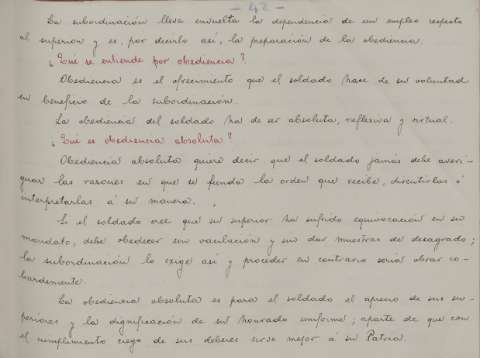 - 42 -
La subordinación lleva envuelta la dependencia de un empleo respecto
al superior y es, por decirlo así, la preparación de la obediencia.
¿Qué se entiende por obediencia?
Obediencia es el ofrecimiento que el soldado hace de su voluntad
en beneficio de la subordinación.
La obediencia del soldado ha de ser absoluta, reflexiva y mutual.
¿Qué es obediencia absoluta?
Obediencia absoluta quiere decir que el soldado jamás debe averi-
guar las razones en que se funda la orden que recibe, discutirlas ó
interpretarlas á su manera.
Si el soldado cree que su superior ha sufrido equivocación en su
mandato, debe obedecer sin vacilación y sin dar muestras de desagrado;
la subordinación lo exige así y proceder en contrario sería obrar co-
bardemente.
La obediencia absoluta es para el soldado el aprecio de sus su-
periores y la dignificación de su honrado uniforme; aparte de que con
el cumplimiento ciego de sus deberes sirve mejor á su Patria.